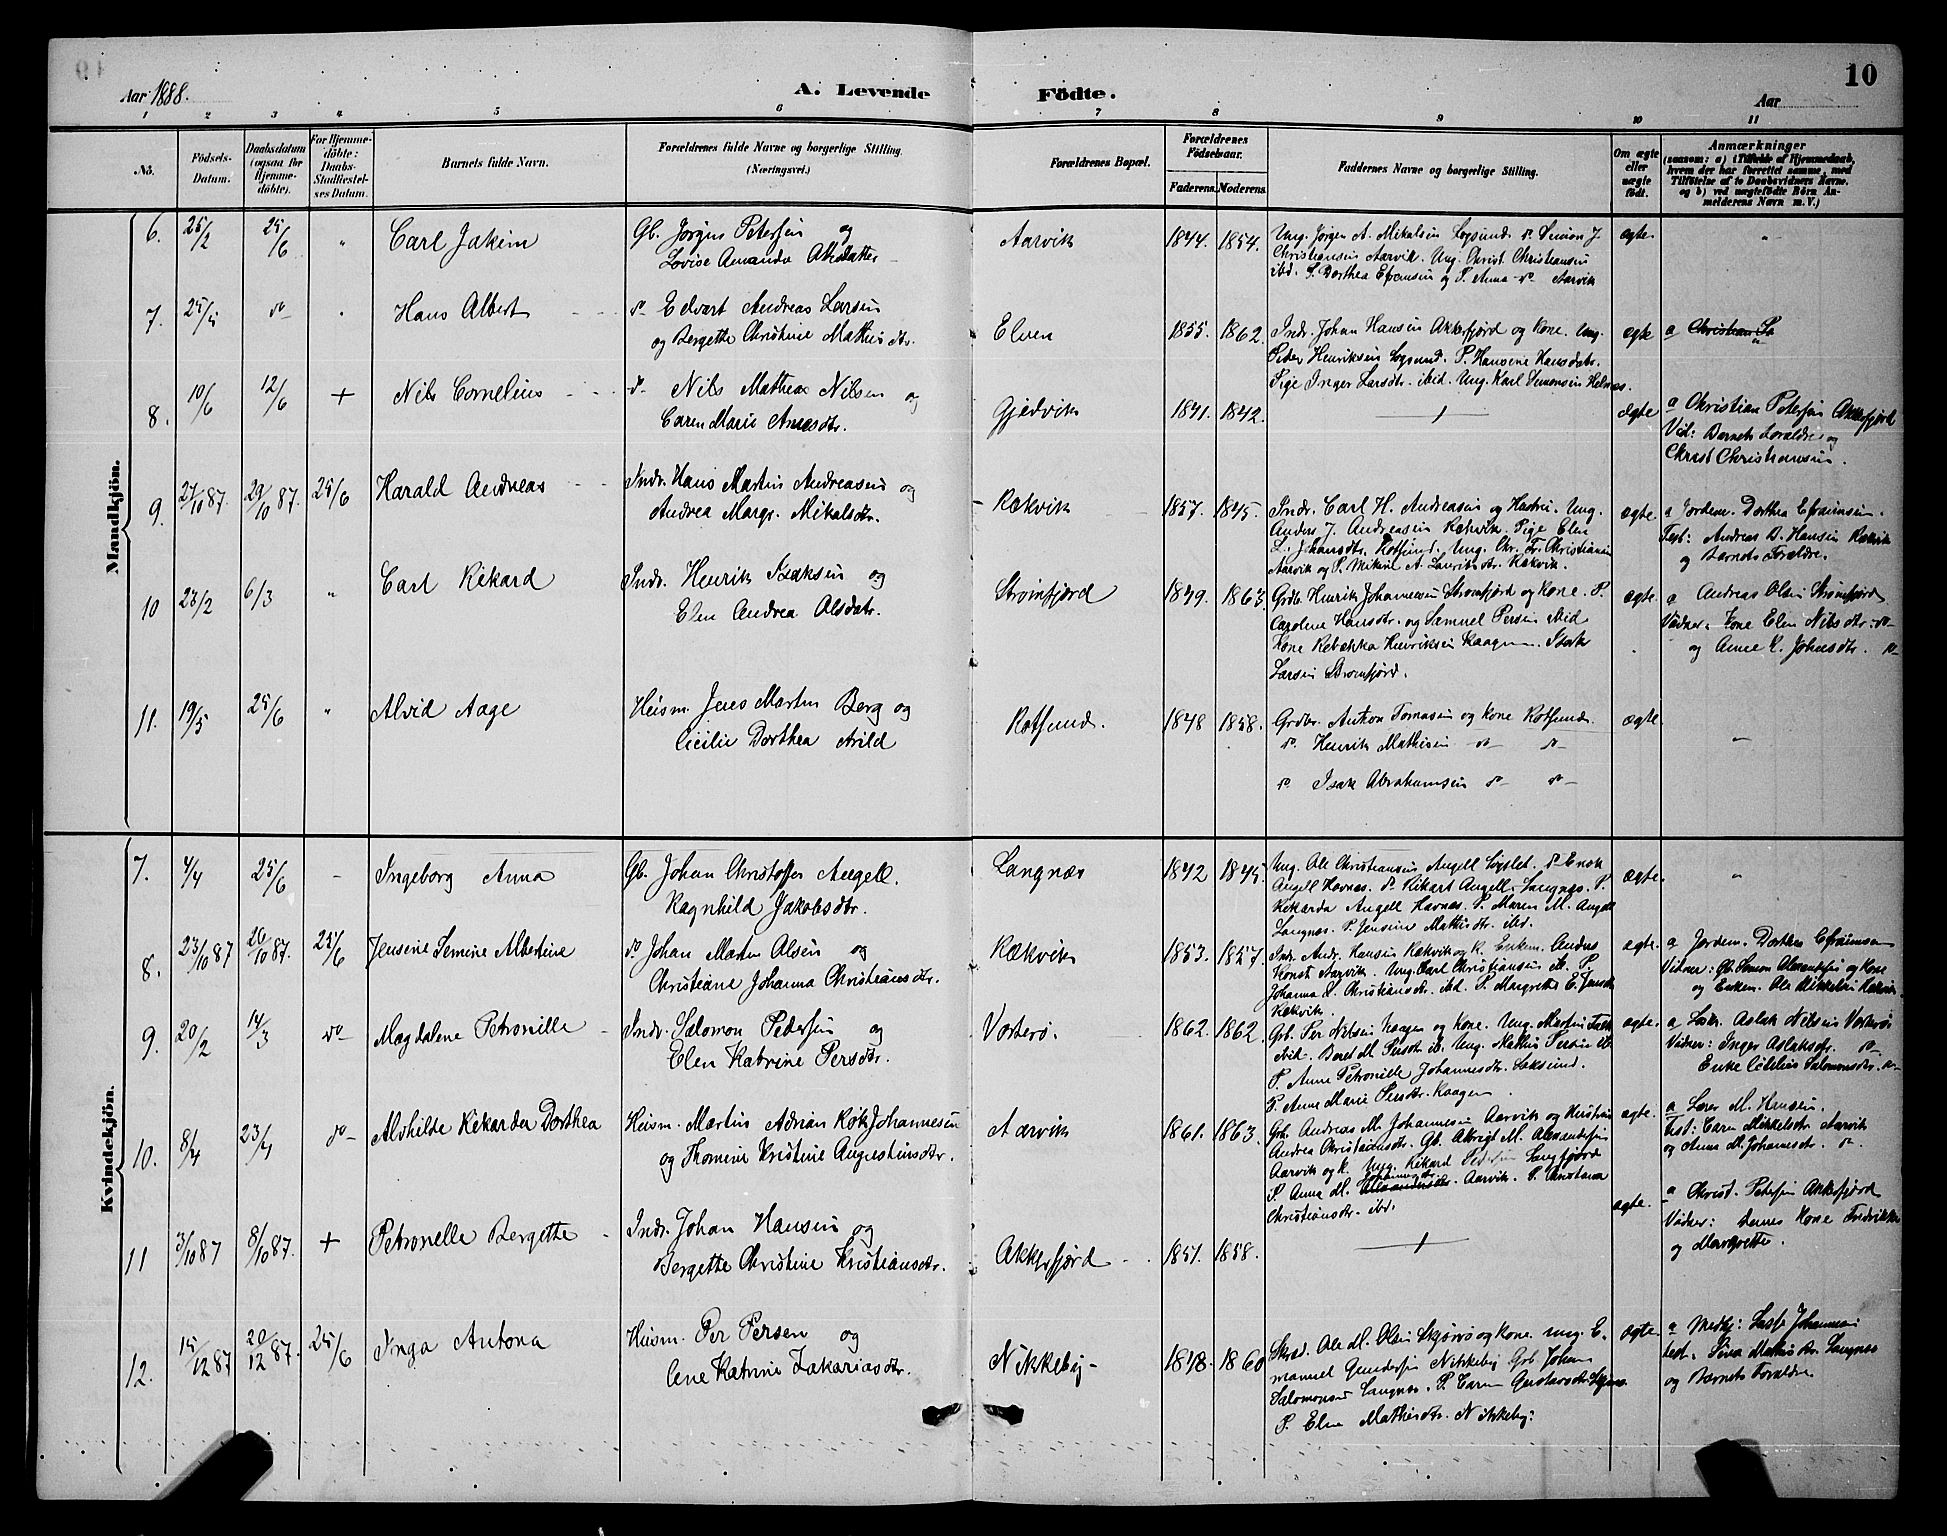 10
Aar 1888.
A. Levende Födte.
Aar
1 2 3 4 5 6 7 8 9 10 11
No.
Födsels-Datum.
Daabsdatum (ogsaa for Hjemmedöbte).
For Hjemmedöbte: Daabs Stadfæstelses Datum.
Barnets fulde Navn.
Forældrenes fulde Navne og borgerlige Stilling. (Næringsvei.)
Forældrenes Bopæl.
Forældrenes Födselsaar.
Faderens. Moderens.
Faddernes Navne og borgerlige Stilling.
Om ægte eller uægte födt.
Anmærkninger
(saasom: a) i Tilfælde af Hjemmedaab,
hvem der har forrettet samme, med
Tilföielse af to Daabsvidners Navne.
og b) ved uægtefödte Börn An-
melderens Navn m. V.)
Mandkjön.
6. 25/2 25/6 " Carl Jakim
Gb. Jørgen Petersen og
Lovise Amanda
Aarvik 1844. 1854.
Ung. Jörgen A. Mikalsen Logsund. do Simon J.
Christiansen Aarvik. Ung. Christ Christiansen
ibd. P. Dorthea Efraimsen og P. Anna do Aarvik
ægte "
7. 25/5 do " Hans Albert
do Edvart Andreas Larsen
og Bergette Christine Mathisdtr.
Elven 1855. 1862.
Indr. Johan Hansen Akkefjord og Kone. Ung.
Peder Henriksen Logsund. P. Hansine Hansdatr.
Pige Inger Larsdtr. ibid. Ung. Karl Simonsen Helnæs.
ægte a Christian Pe
8. 10/6 12/6 + Nils Cornelius
do Nils Mathias Nilsen og
Caren Marie
Gjedvik 1841. 1842.
ægte
a Christian Petersen Akkefjord
Vid: Barnets Forældre og
Christ Christiansen.
9. 27/10 87. 29/10 87. 25/6 Harald Andreas
Indr. Hans Martin Andreasen og
Andrea Margr. Mikalsdtr.
Rækvik 1857. 1845.
Indr. Carl H. Andreasen og Hustru. Ung.
Anders J. Andreasen Rækvik. Pige Elen
L. Johansdtr. Rotsund. Ung. Chr. Fr. Christiansen
Aarvik og P. Mikal A. Lauritsdtr. Rækvik.
ægte
a Jordem. Dorthea Efraimsen.
Test: Andreas D. Hansen Rækvik
og Barnets Forældre.
10 23/2 6/3 " Carl Rikard
Indr. Henrik Isaksen og
Elen Andrea Olsdatr.
Strömfjord 1849. 1863.
Grdb. Henrik Johannesen Strömfjord og Kone. P.
Caroline Hansdtr. og Samuel Persen ibid
Kone Rebekka Henriksen Kaagen. Isak
Larsen Strömfjord.
ægte.
a Andreas Olsen Strömfjord
Vidner. Kone Elen Nilsdtr. do
og Anne E. Johnsdtr. do
11. 19/5 25/6 " Alvid Aage
Huism. Jens Martin Berg og
Cicilie Dorthea Arild
Rotsund. 1848 1858.
Grdbr. Anton Tomasen og Kone Rotsund.
do Henrik Mathisen do do
do Isak Abrahamsen do do
ægte.
Kvindekjön.
7. 4/4 25/6 - Ingeborg Anna
Gb. Johan Christoffer Angell.
Ragnhild Jakobsdtr.
Langnæs 1842 1845
Ung. Ole Christiansen Angell. do Enok
Angell Havnæs. do Rikart Angell. Langnæs. P.
Rikarda Angell Havnæs. P. Maren M. Angell
Langnæs. P. Jensine Mathisdtr. ibd.
ægte. "
8. 23/10 87 20/10 87. 25/6 Jensine Semine Albertine
do Johan Martin Olsen og
Christiane Johanna Christiansdtr.
Rækvik 1853. 1857.
Indr. Andr. Hansen Rækvik og K. Enkem. Anders
Konst Aarvik. Ung. Carl Christiansen ib. P.
Johanna D. Christiansdtr. ibd P. Margrethe E.
Rækvik.
ægte.
a Jordem. Dorthea Efraimsen
Vidner: Gb. Simon Alexandersen og Kone
og Enkem. Ole Mikkelsen Rækvik.
9. 20/2 14/3 do Magdalene Petronille
Indr. Salomon Pedersen og
Elen Katrine Persdtr.
Vorterö. 1862. 1862
Grb. Per Nilsen Kaagen og Kone. Ung. Martin
ibid. Beret M. Persdtr ib. Ung. Mathis Persen ib.
P. Anne Petronille Johannesdtr. Loksund.
P. Anne Marie Persdtr. Kaagen
ægte.
a Aslak Nilsen Vorterö
Vidner: Inger Aslaksdtr. do
Enke Cicilie Salomonsdtr. do
10. 8/4 23/4 do Alvhilde Rikarda Dorthea
Huism. Martin Adrian Rök Johannesen
og Thomine Kristine Augustinsdtr.
Aarvik 1861. 1863.
Grb. Andreas M. Johannesen Aarvik og Hustru
Andrea Christiansdtr. Gb. Albrigt M. Alexandersen
Aarvik og K. Ung. Rikard Pedersen Langfjord
P. Anna M. Johannesdtr. Aarvik. P. Christiana
Christiansdtr. ibd.
ægte.
a Lærer M. Hansen.
Test: Caren Mikkelsdtr Aarvik
og Anna M. Johannesdtr. do
11 3/10 87 8/10 87. + Petronelle Bergette
Indr. Johan Hansen og
Bergette Christine Kristiansdtr.
Akkefjord 1851. 1858.
ægte.
a Christ. Petersen Akkefjord
Vidner: Dennes Kone Fredrikke
og Margrette.
12. 15/12 87 20/12 87. 25/6 Inga Antona
Huism. Per Persen og
Ane Katrine Zakariasdtr.
Nikkeby 1848. 1860
Skræd. Ole M. Olsen Skjervö og Kone. Ung. E-
manuel Gundersen Nikkeby Grb. Johan
Salomonsen Langnæs. P. Caren Gustavsdtr.
P. Elen Mathisdtr. Nikkeby.
ægte.
a Medhj: Lasse Johannesen
Test. Sina Mathisdtr. Langnæs
og Barnets Forældre